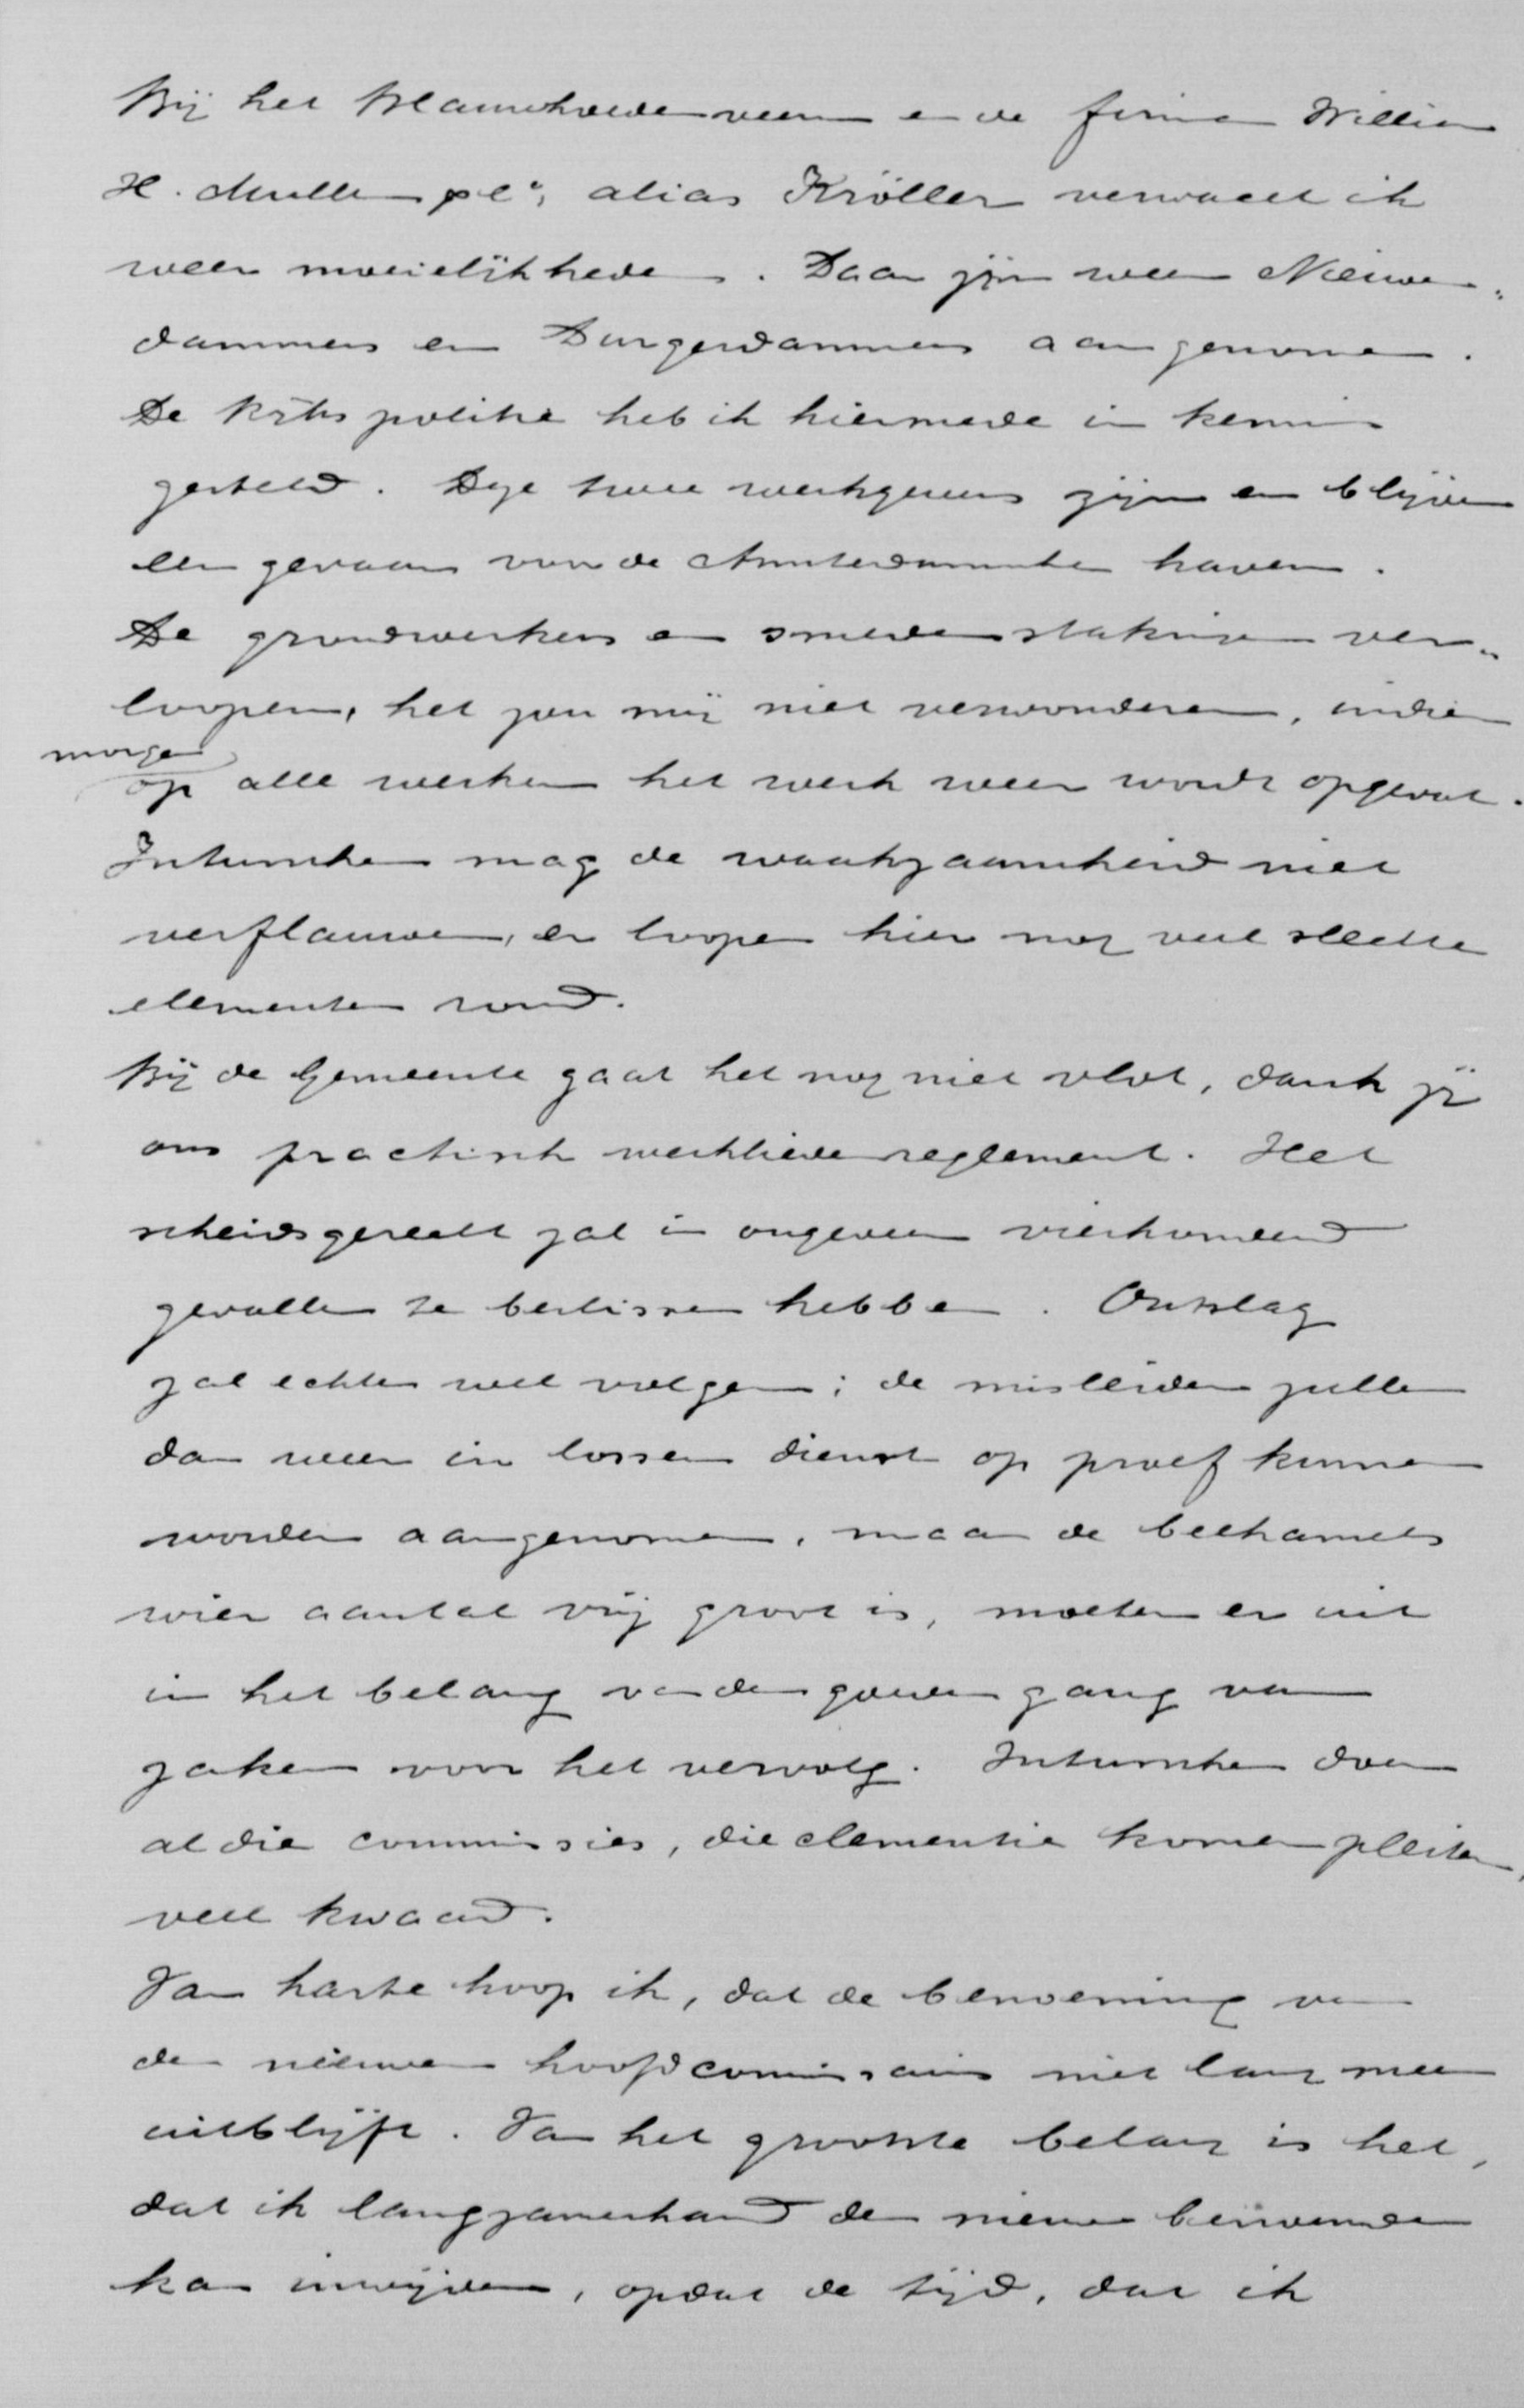 Bij het Blauwhoedenveem en de firma William
H. Muller & Co, alias Kröller verwacht ik
weer moeielijkheden. Daar zijn weer Nieuwen-
dammers en Durgerdammers aangenomen.
De Rijks politie heb ik hiermede in kennis
gesteld. Deze twee werkgevers zijn en blijven
een gevaar van de Amsterdamsche haven.
De grondwerkers en smeden stakingen ver-
loopen, het zou mij niet verwonderen, indien
morgen
op alle werken het werk weer wordt opgevat.
Intusschen mag de waakzaamheid niet
verflauwen, er loopen hier nog veel slechte
elementen rond.
Bij de Gemeente gaat het nog niet vlot, dank zij
ons practisch werkliedenreglement. Het
scheidsgerecht zal in ongeveer vierhonderd
gevallen te beslissen hebben. Ontslag
zal echter wel volgen; de misleiden zullen
dan weer in lossen dienst op proef kunnen
worden aangenomen, maar de belhamels
wier aantal vrij groot is, moeten er uit
in het belang van den goeden gang van
zaken voor het vervolg. Intusschen doen
al die commissies, die clementie komen pleiten,
veel kwaad.
Van harte hoop ik, dat de benoeming van
den nieuwen hoofdcommissaris niet lang meer
uitblijft. Van het grootste belang is het,
dat ik langzamerhand den nieuw benoemden
kan inwijden, opdat de tijd, dat ik